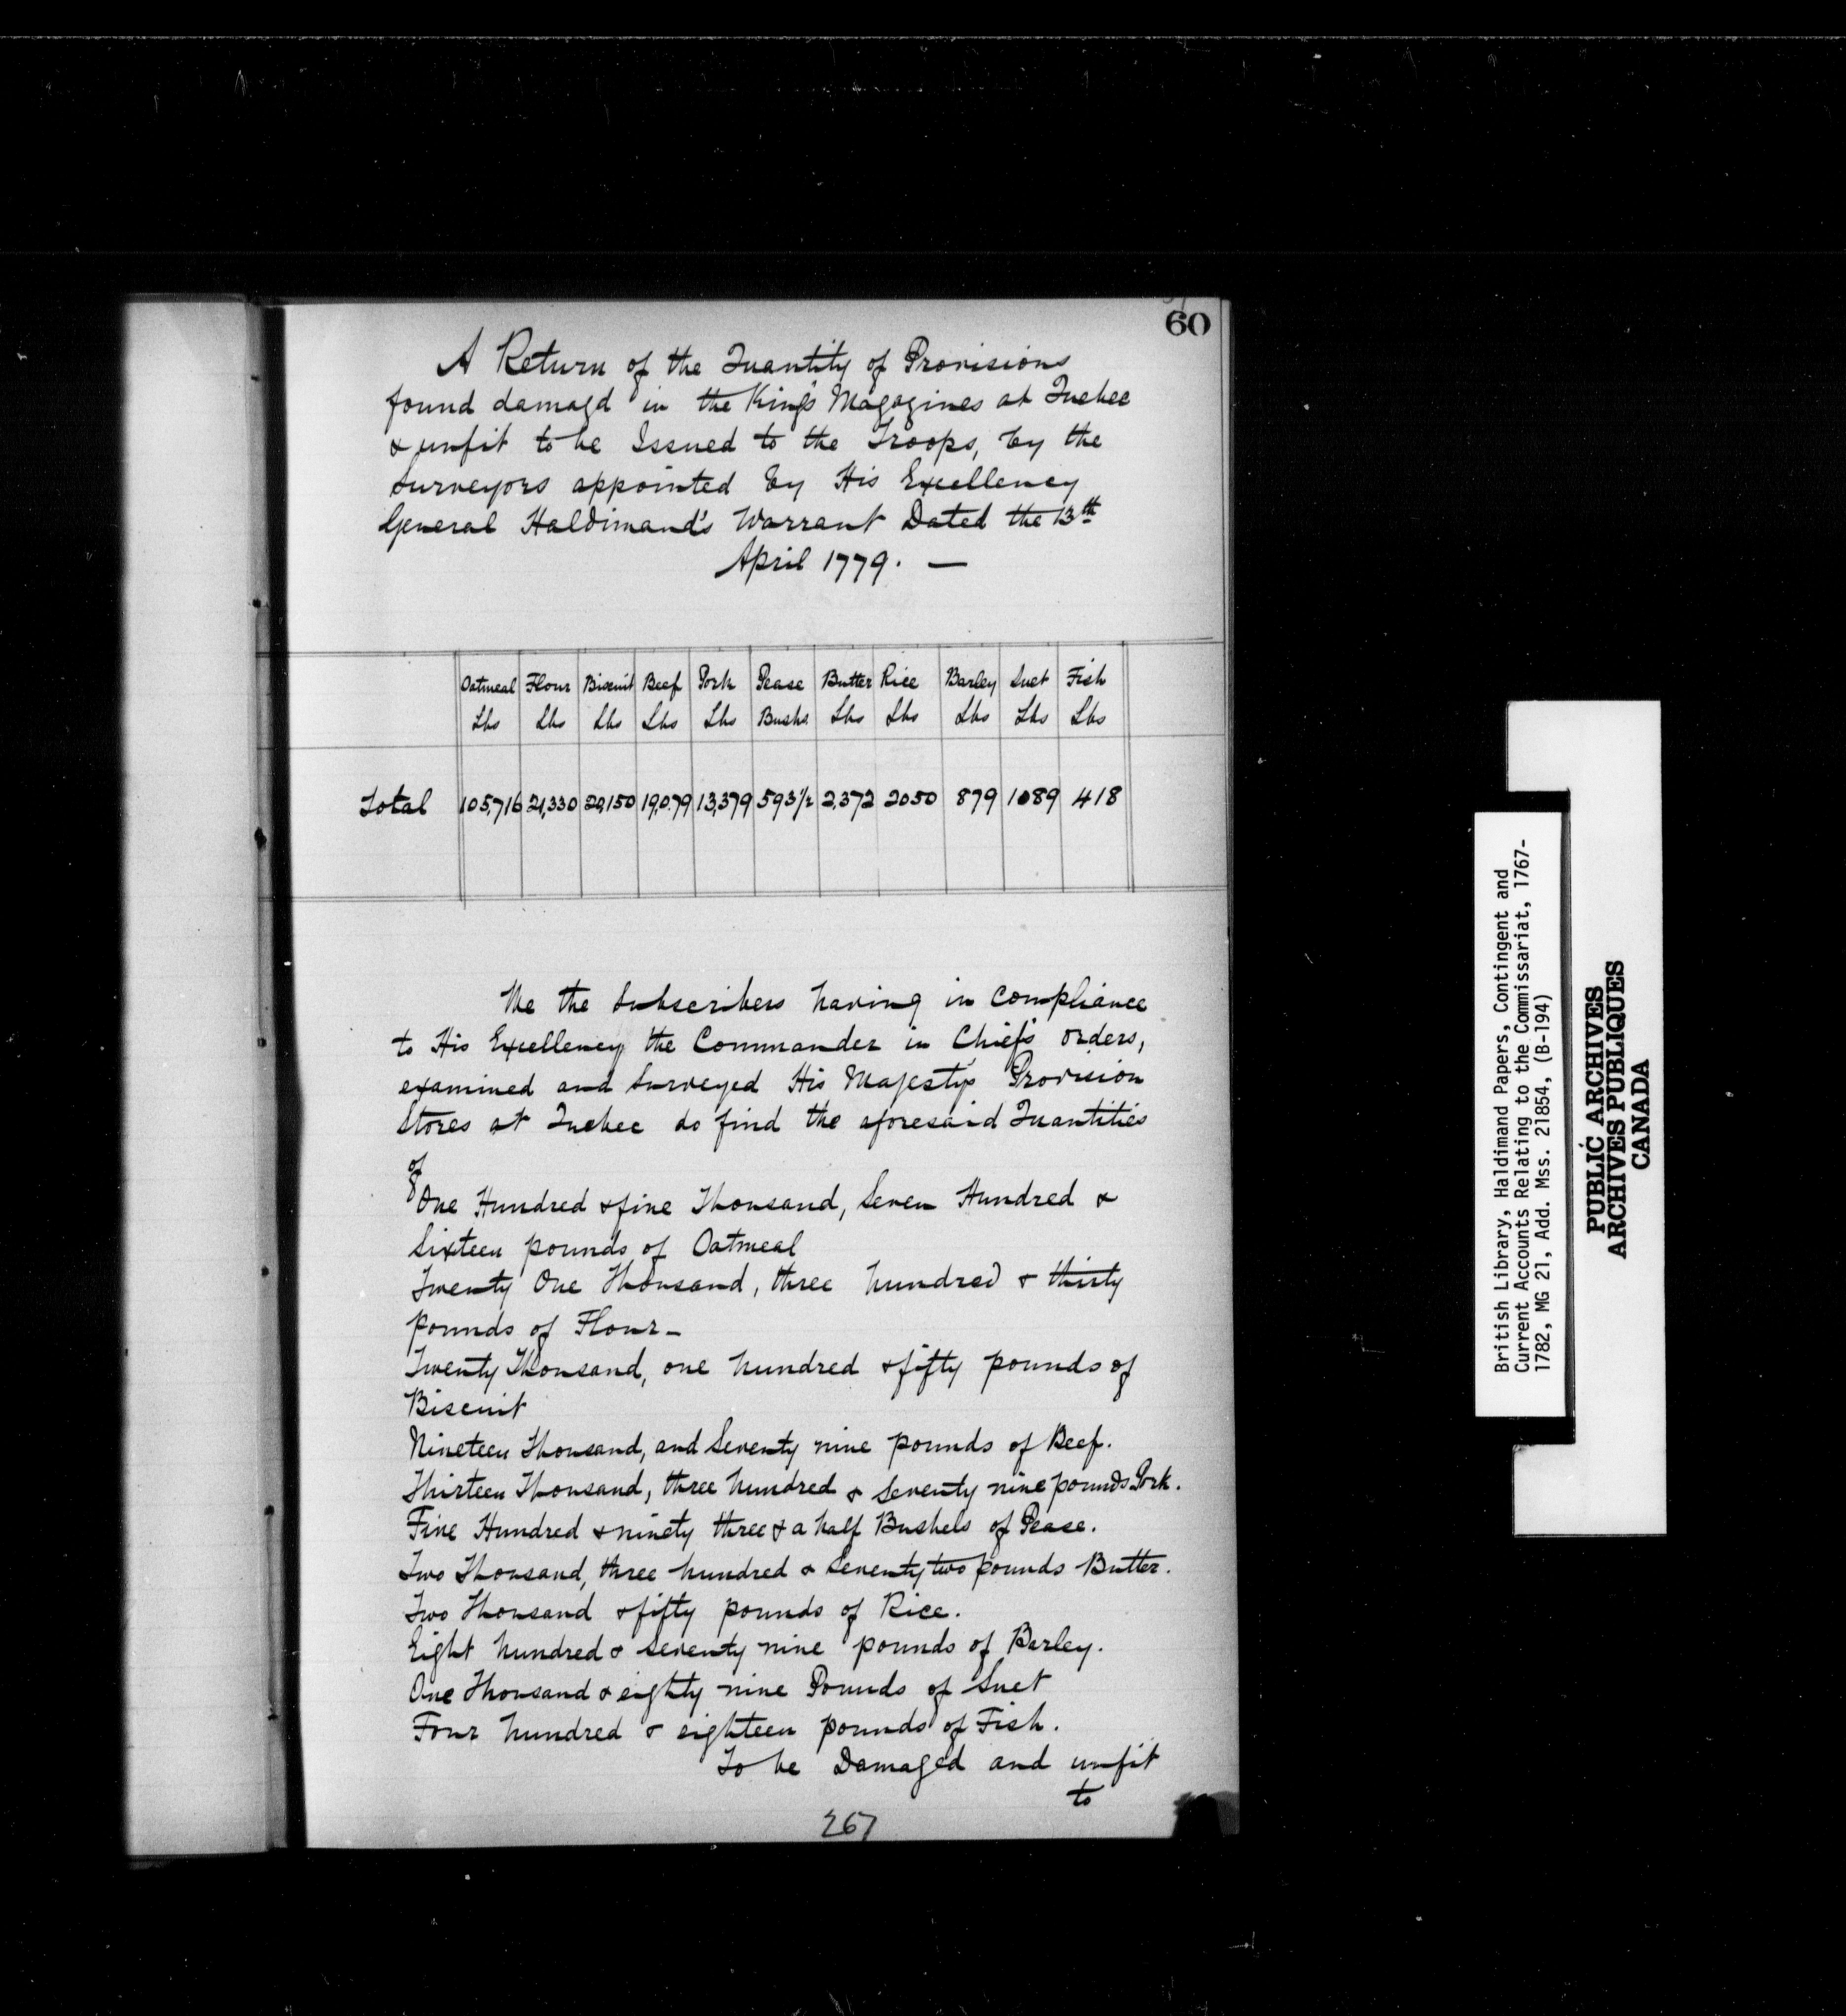 60
A Return of the Quantity of Provisions
found damagd in the King's Magazines at Quebec
& unfit to be Issued to the Troops, by the
Surveyors appointed by His Excellency
General Haldimand's Warrant Dated the 13th
April 1779. —
Oatmeal Flour Biscuit Beef Pork Pease Butter Rice Barley Suet Fish
Lbs Lbs Lbs Lbs Lbs Bushs Lbs Lbs Lbs Lbs Lbs
Total 105,716 21,330 20,150 19,079 13,379 593½ 2,372 2050 879 1089 418
We the Subscribers having in compliance
to His Excellency the Commander in Chief's orders,
examined and Surveyed His Majesty's Provision
Stores at Quebec do find the aforesaid Quantities
of
One Hundred & five Thousand, Seven Hundred &
Sixteen pounds of Oatmeal
Twenty One Thousand, three hundred & thirty
pounds of Flour -
Twenty Thousand, one hundred & fifty pounds of
Biscuit
Nineteen Thousand, and Seventy nine pounds of Beef.
Thirteen Thousand, three hundred & seventy nine pounds Pork.
Five Hundred & ninety three & a half Bushels of Pease.
Two Thousand, three hundred & Seventy two pounds Butter.
Two Thousand & fifty pounds of Rice.
Eight hundred & seventy nine pounds of Barley.
One Thousand & eighty nine Pounds of Suet
Four hundred & eighteen pounds of Fish.
To be Damaged and unfit
to
267
British Library, Haldimand Papers, Contingent and
Current Accounts Relating to the Commissariat, 1767-
1782, MG 21, Add. Mss. 21854, (B-194)
PUBLIC ARCHIVES
ARCHIVES PUBLIQUES
CANADA